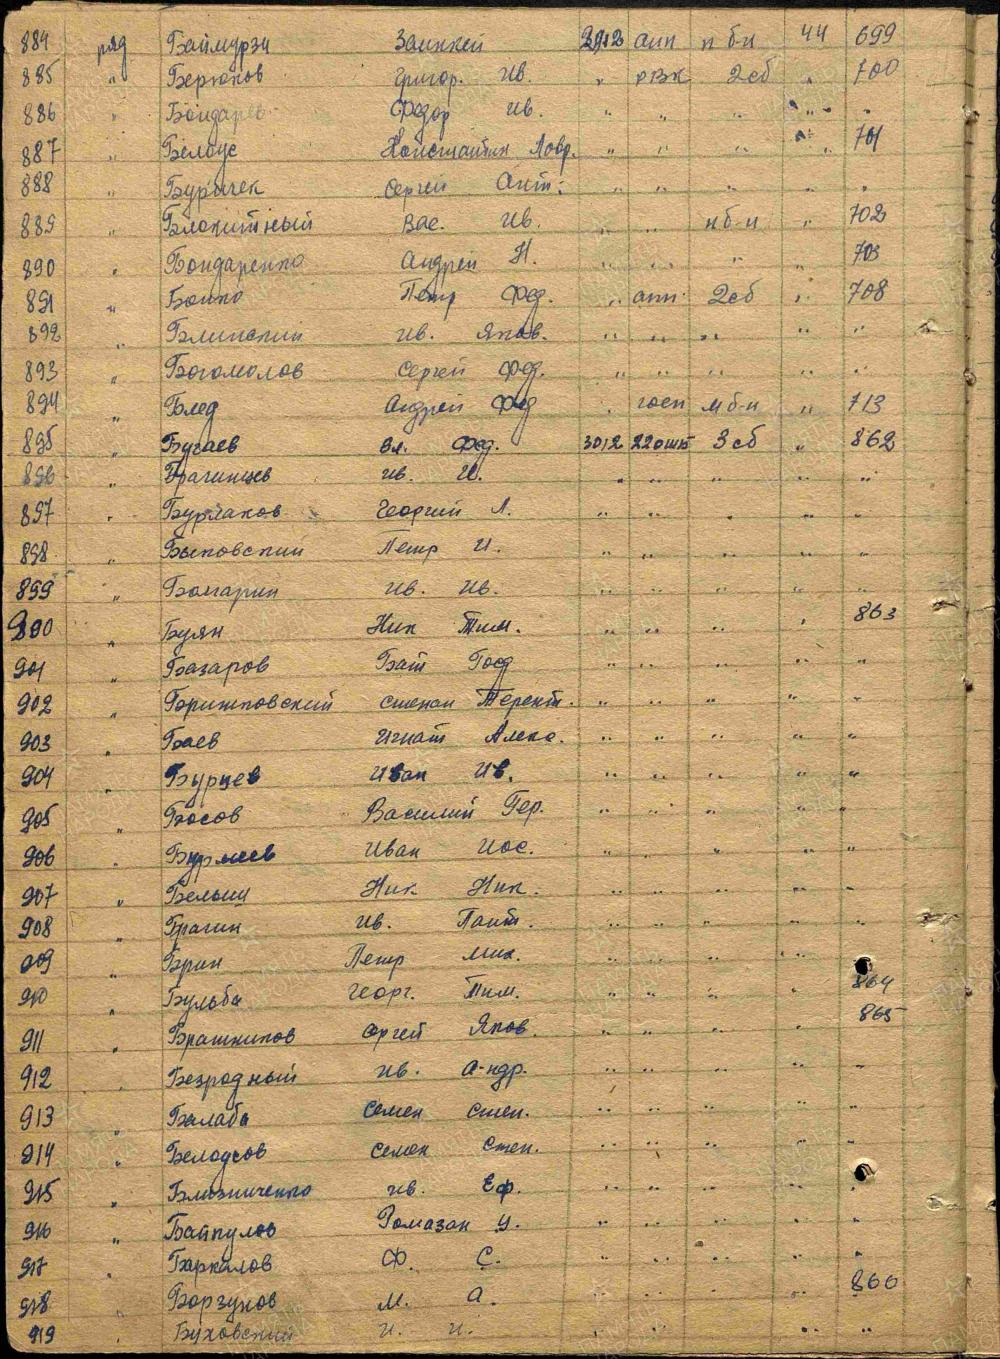 884 ряд Баймурзи Заинкей 2912 апп п б-н 44 699
885 " Берюков Григор. Ив. " РВК 2сб " 700
886 " Бондарев Федор Ив. " " " " "
887 " Белоус Констайтин Лавр. " " " " 701
888 " Буричек Сергей Ант. " " " "
889 " Блокитный Вас. Ив. " " п б-н " 702
890 " Бондаренко Андрей Н. " " " " 703
891 " Бойко Петр Фед. " апп. 2сб " 708
892 " Блинский Ив. Яков. " " " " "
893 " Богомолов Сергей Фед. " " " " "
894 " Блед Андрей Фед " госп м б-н " 713
895 " Бугаев Вл. Фед. 3012 220шп 3сб " 862
896 " Брагинцев Ив. И. " " " " "
897 " Бурлаков Георгий Л. " " " " "
898 " Быковский Петр И. " " " " "
899 " Бомарин Ив. Ив. " " " " "
900 " Буян Ник Тим. " " " " 863
901 " Базаров Бат Тосд " " " " "
902 " Бришповский Степан Терент. " " " " "
903 " Баев Игнат Алекс. " " " " "
904 " Бурцев Иван Ив. " " " " "
905 " Босов Василий Гер. " " " " "
906 " Бурмеев Иван Иос. " " " " "
907 " Белоиц Ник Ник. " " " " "
908 " Брагин Ив. Пант. " " " " "
909 " Брин Петр Мих. " " " "
910 " Бульба Георг. Тим. " " " " 864
911 " Брашников Сергей Яков. " " " " 865
912 " Безродный Ив. А-ндр. " " " " "
913 " Балаба Семен Степ. " " " " "
914 " Белоусов Семен Степ. " " " " "
915 " Близниченко Ив. Еф. " " " " "
916 " Байкулов Ромазан У. " " " " "
917 " Баркалов Ф. С. " " " " "
918 " Борзунов М. А. " " " " 866
919 " Буховский И. И. " " " "